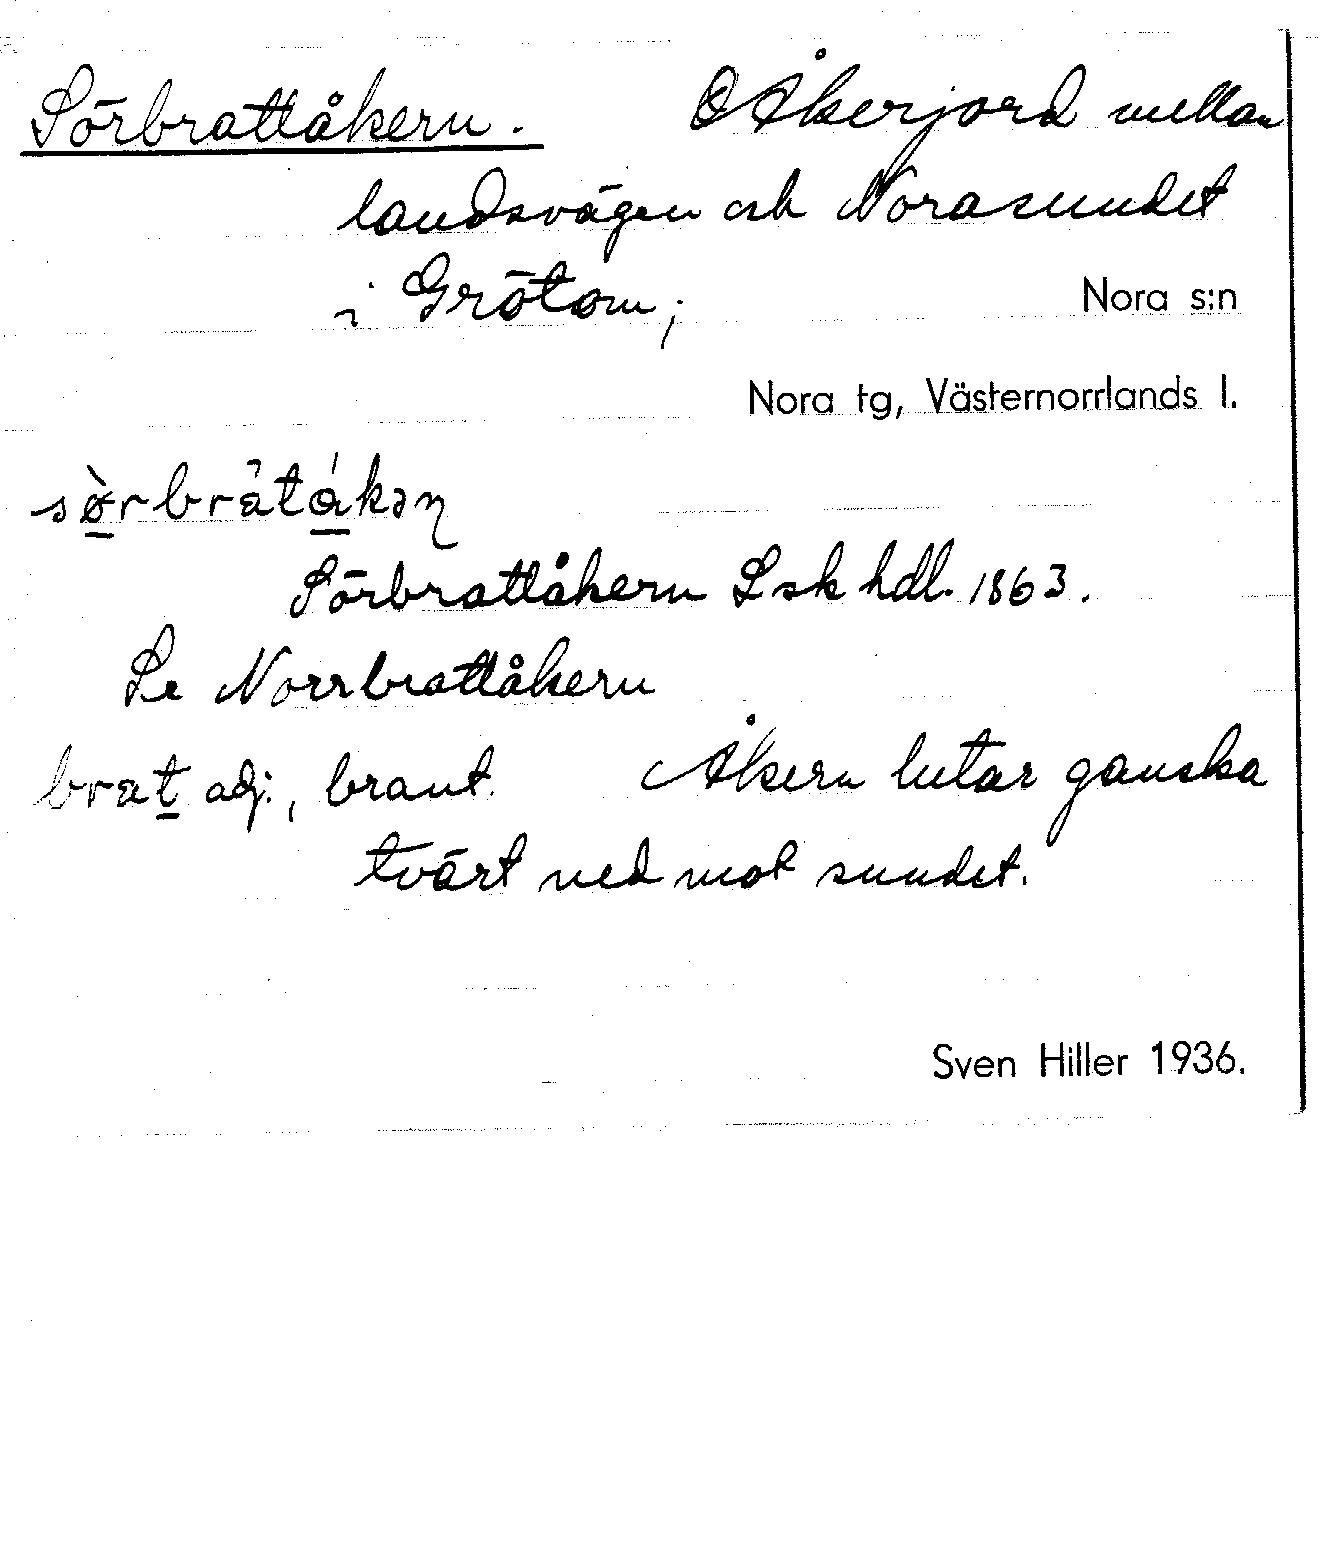 Sörbrattåkern. Åkerjord mellan
landsvägen och Norasundet
i Grötom;
Nora s:n
Nora tg, Västernorrlands l.
sø̀rbràtákən
Sörbrattåkern Lsk hdl. 1863.
Se Norrbrattåkern
brat adj., brant. Åkern lutar ganska
tvärt ned mot sundet.
Sven Hiller 1936.